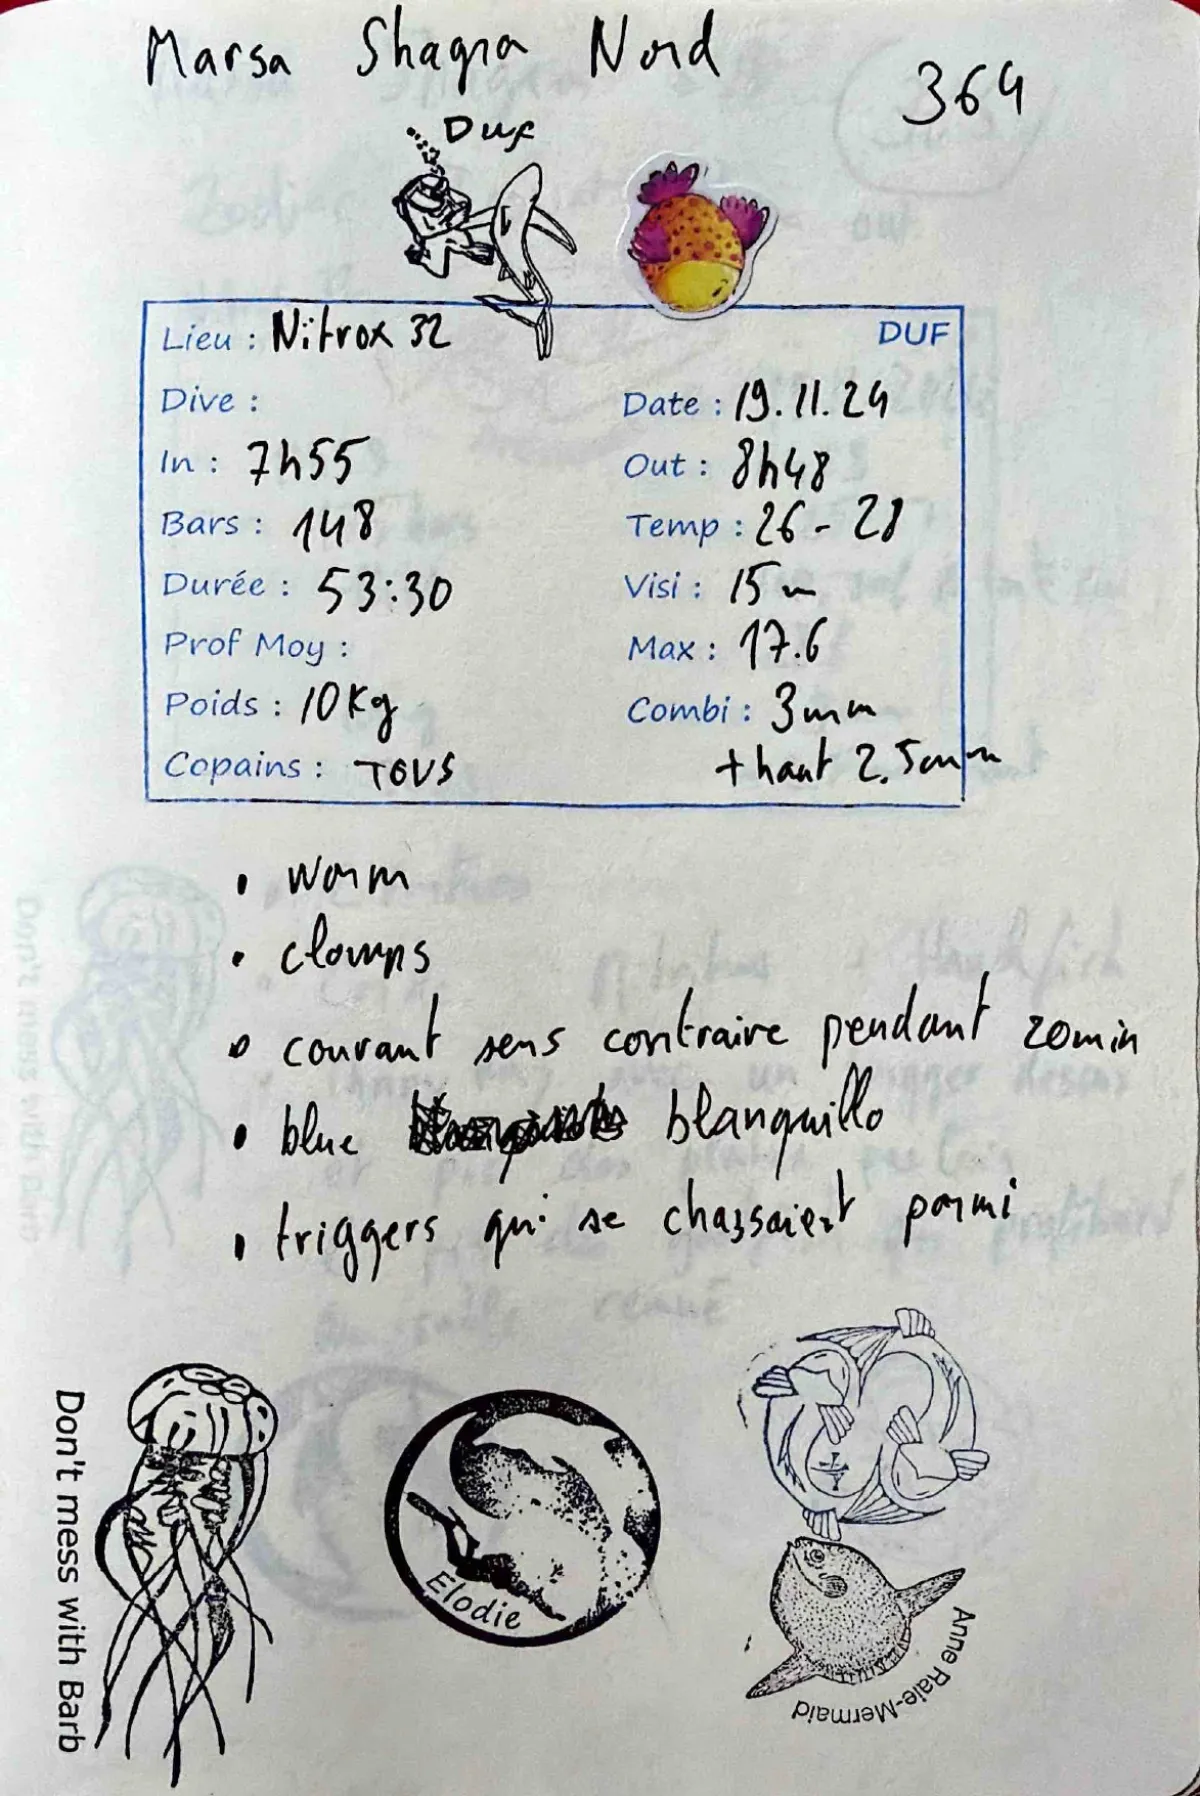 Marsa Shagra Nord
364
Duf
Lieu : Nitrox 32 DUF
Dive : Date : 19.11.24
In : 7h55 Out : 8h48
Bars : 148 Temp : 26 - 28
Durée : 53:30 Visi : 15m
Prof Moy : Max : 17.6
Poids : 10Kg Combi : 3mm
Copains : TOUS + haut 2.5mm
• worm
• clowns
• courant sens contraire pendant 20min
• blue blanquillo
• triggers qui se chassaient parmi
Don't mess with Barb
Elodie
Anne Raie-Mermaid